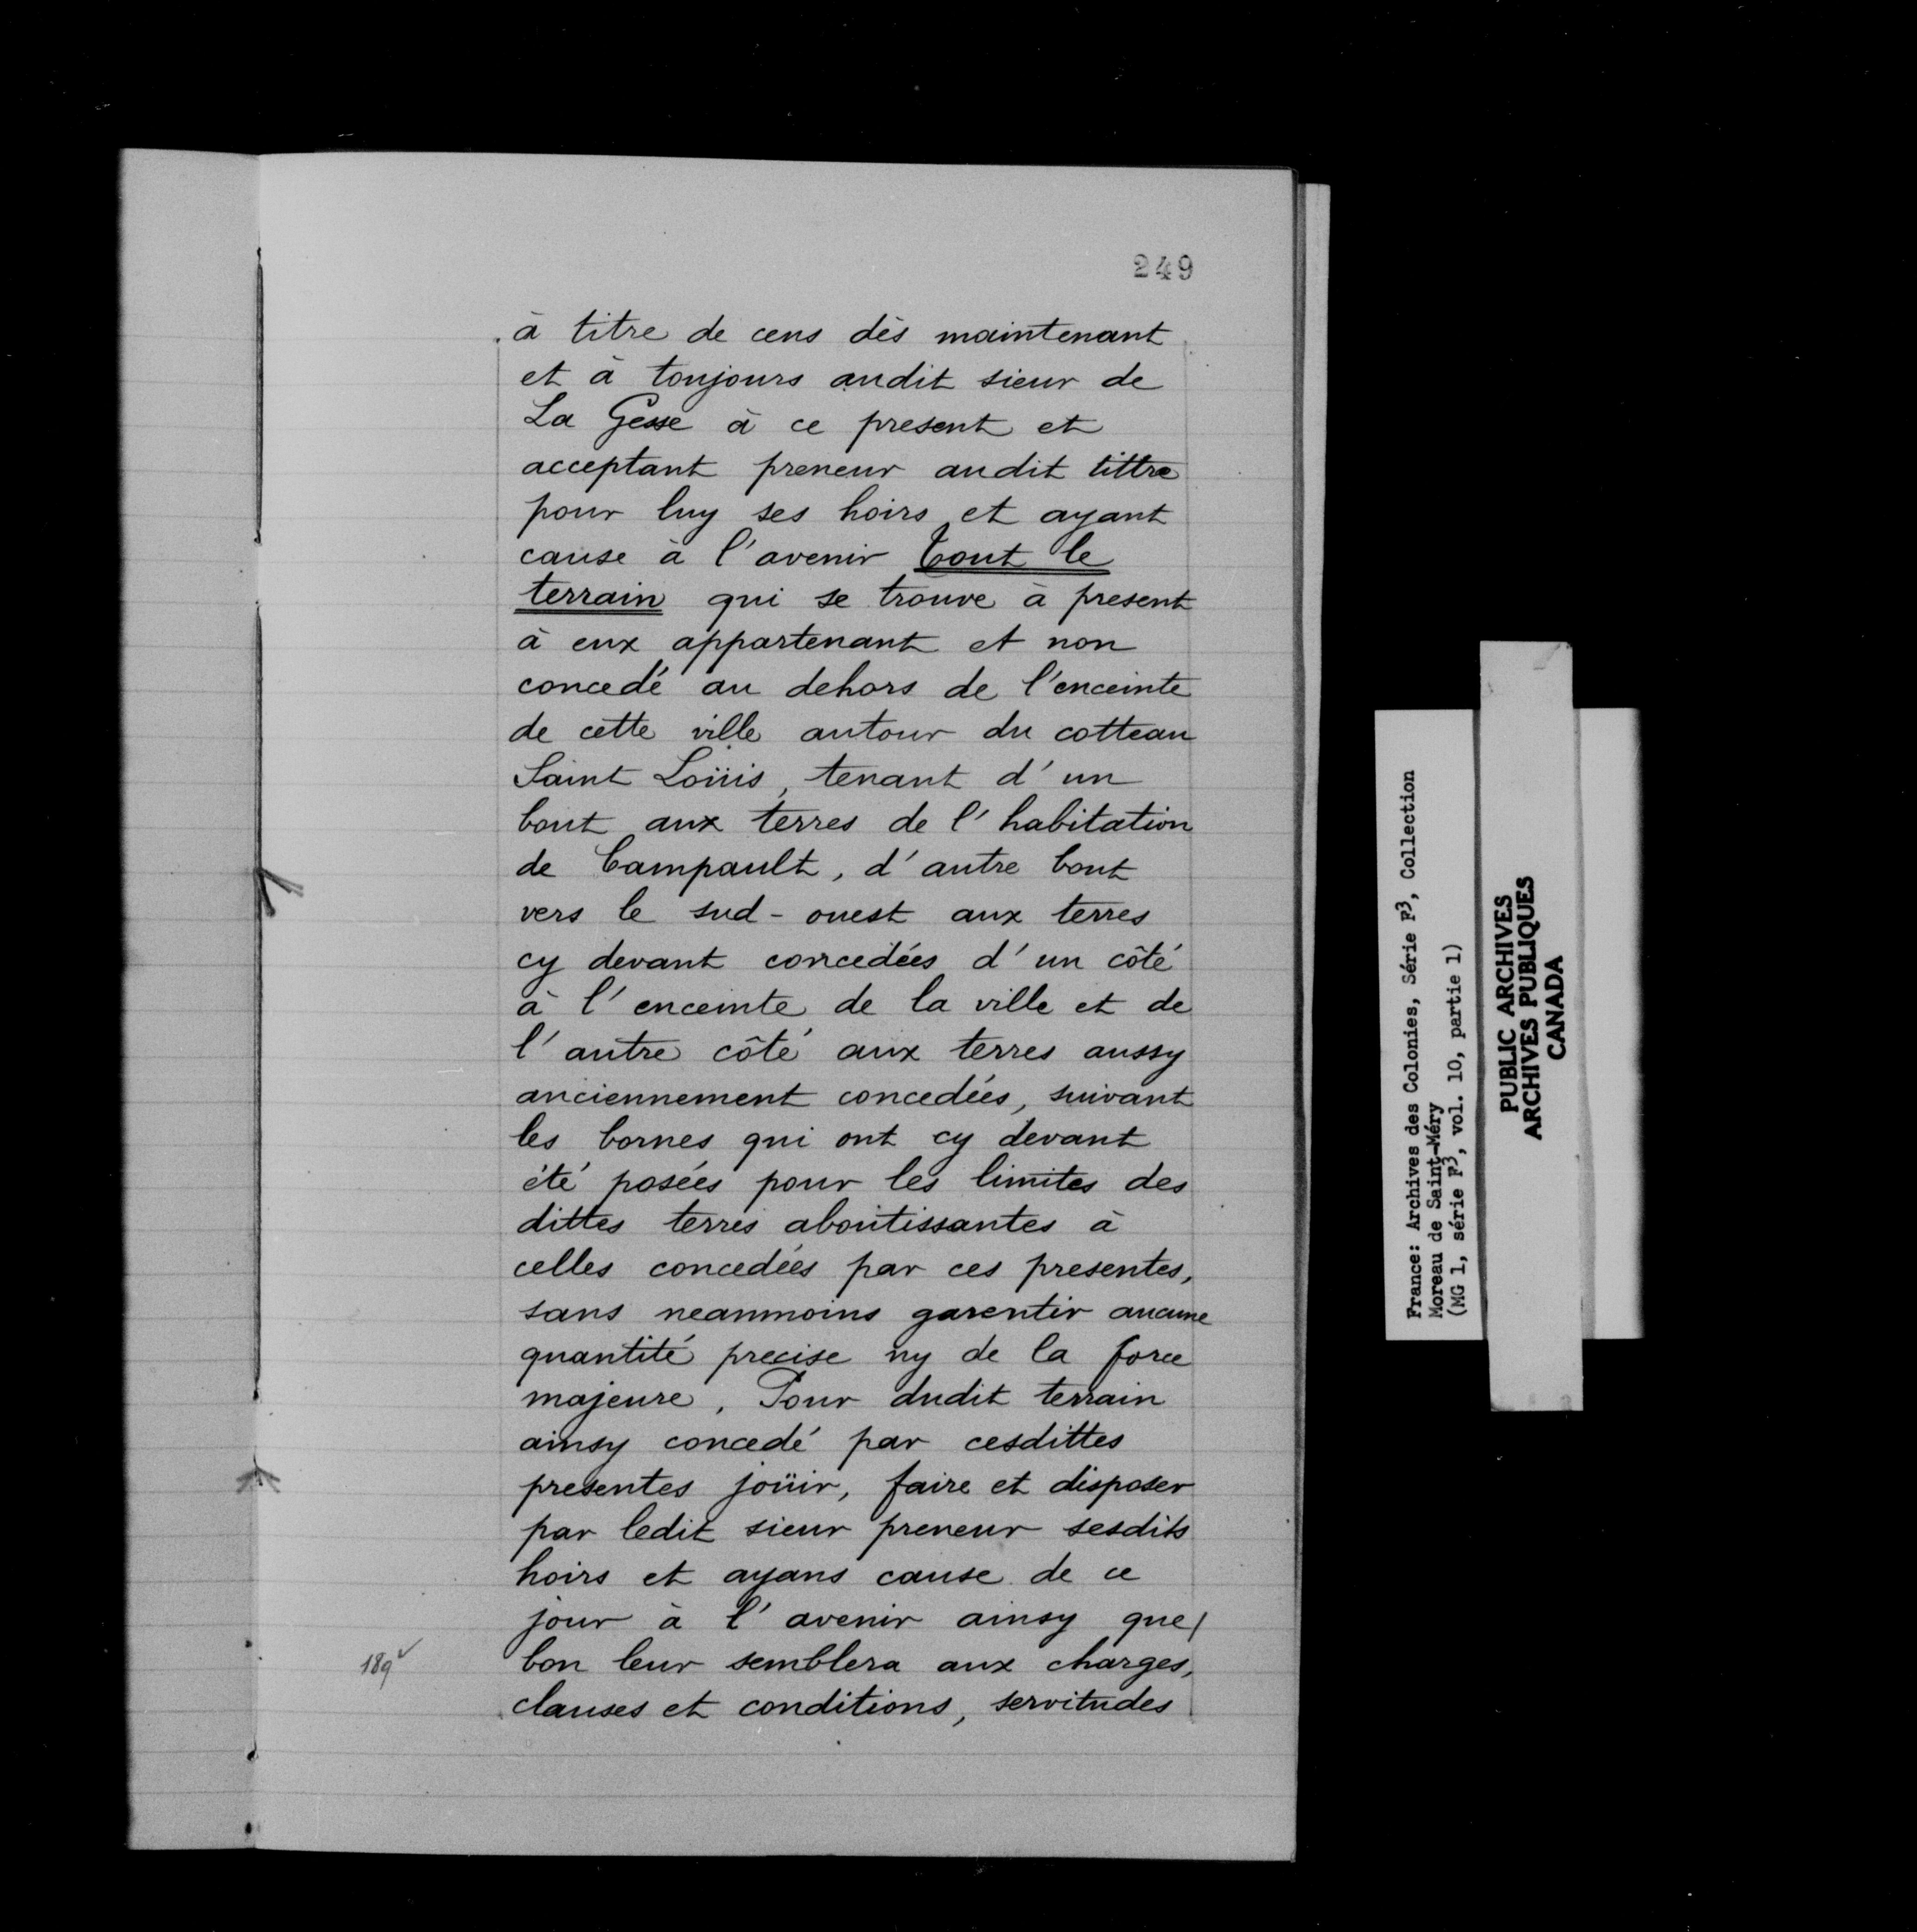 249
à titre de cens dès maintenant
et à toujours audit sieur de
La Gesse à ce present et
acceptant preneur audit tittre
pour luy ses hoirs et ayant
cause à l'avenir tout le
terrain qui se trouve à present
à eux appartenant et non
concedé au dehors de l'enceinte
de cette ville autour du cotteau
Saint Loüis, tenant d'un
bout aux terres de l'habitation
de Campault, d'autre bout
vers le sud-ouest aux terres
cy devant concedées d'un côté
à l'enceinte de la ville et de
l'autre côté aux terres aussy
anciennement concedées, suivant
les bornes qui ont cy devant
été posées pour les limites des
dittes terres aboutissantes à
celles concedées par ces presentes,
sans neanmoins garentir aucune
quantité precise ny de la force
majeure. Pour dudit terrain
ainsy concedé par cesdittes
presentes joüir, faire et disposer
par ledit sieur preneur sesdits
hoirs et ayans cause de ce
jour à l'avenir ainsy que/
189v bon leur semblera aux charges,
clauses et conditions, servitudes
France: Archives des Colonies, Série F3, Collection
Moreau de Saint-Méry
(MG 1, série F3, vol. 10, partie 1)
PUBLIC ARCHIVES
ARCHIVES PUBLIQUES
CANADA